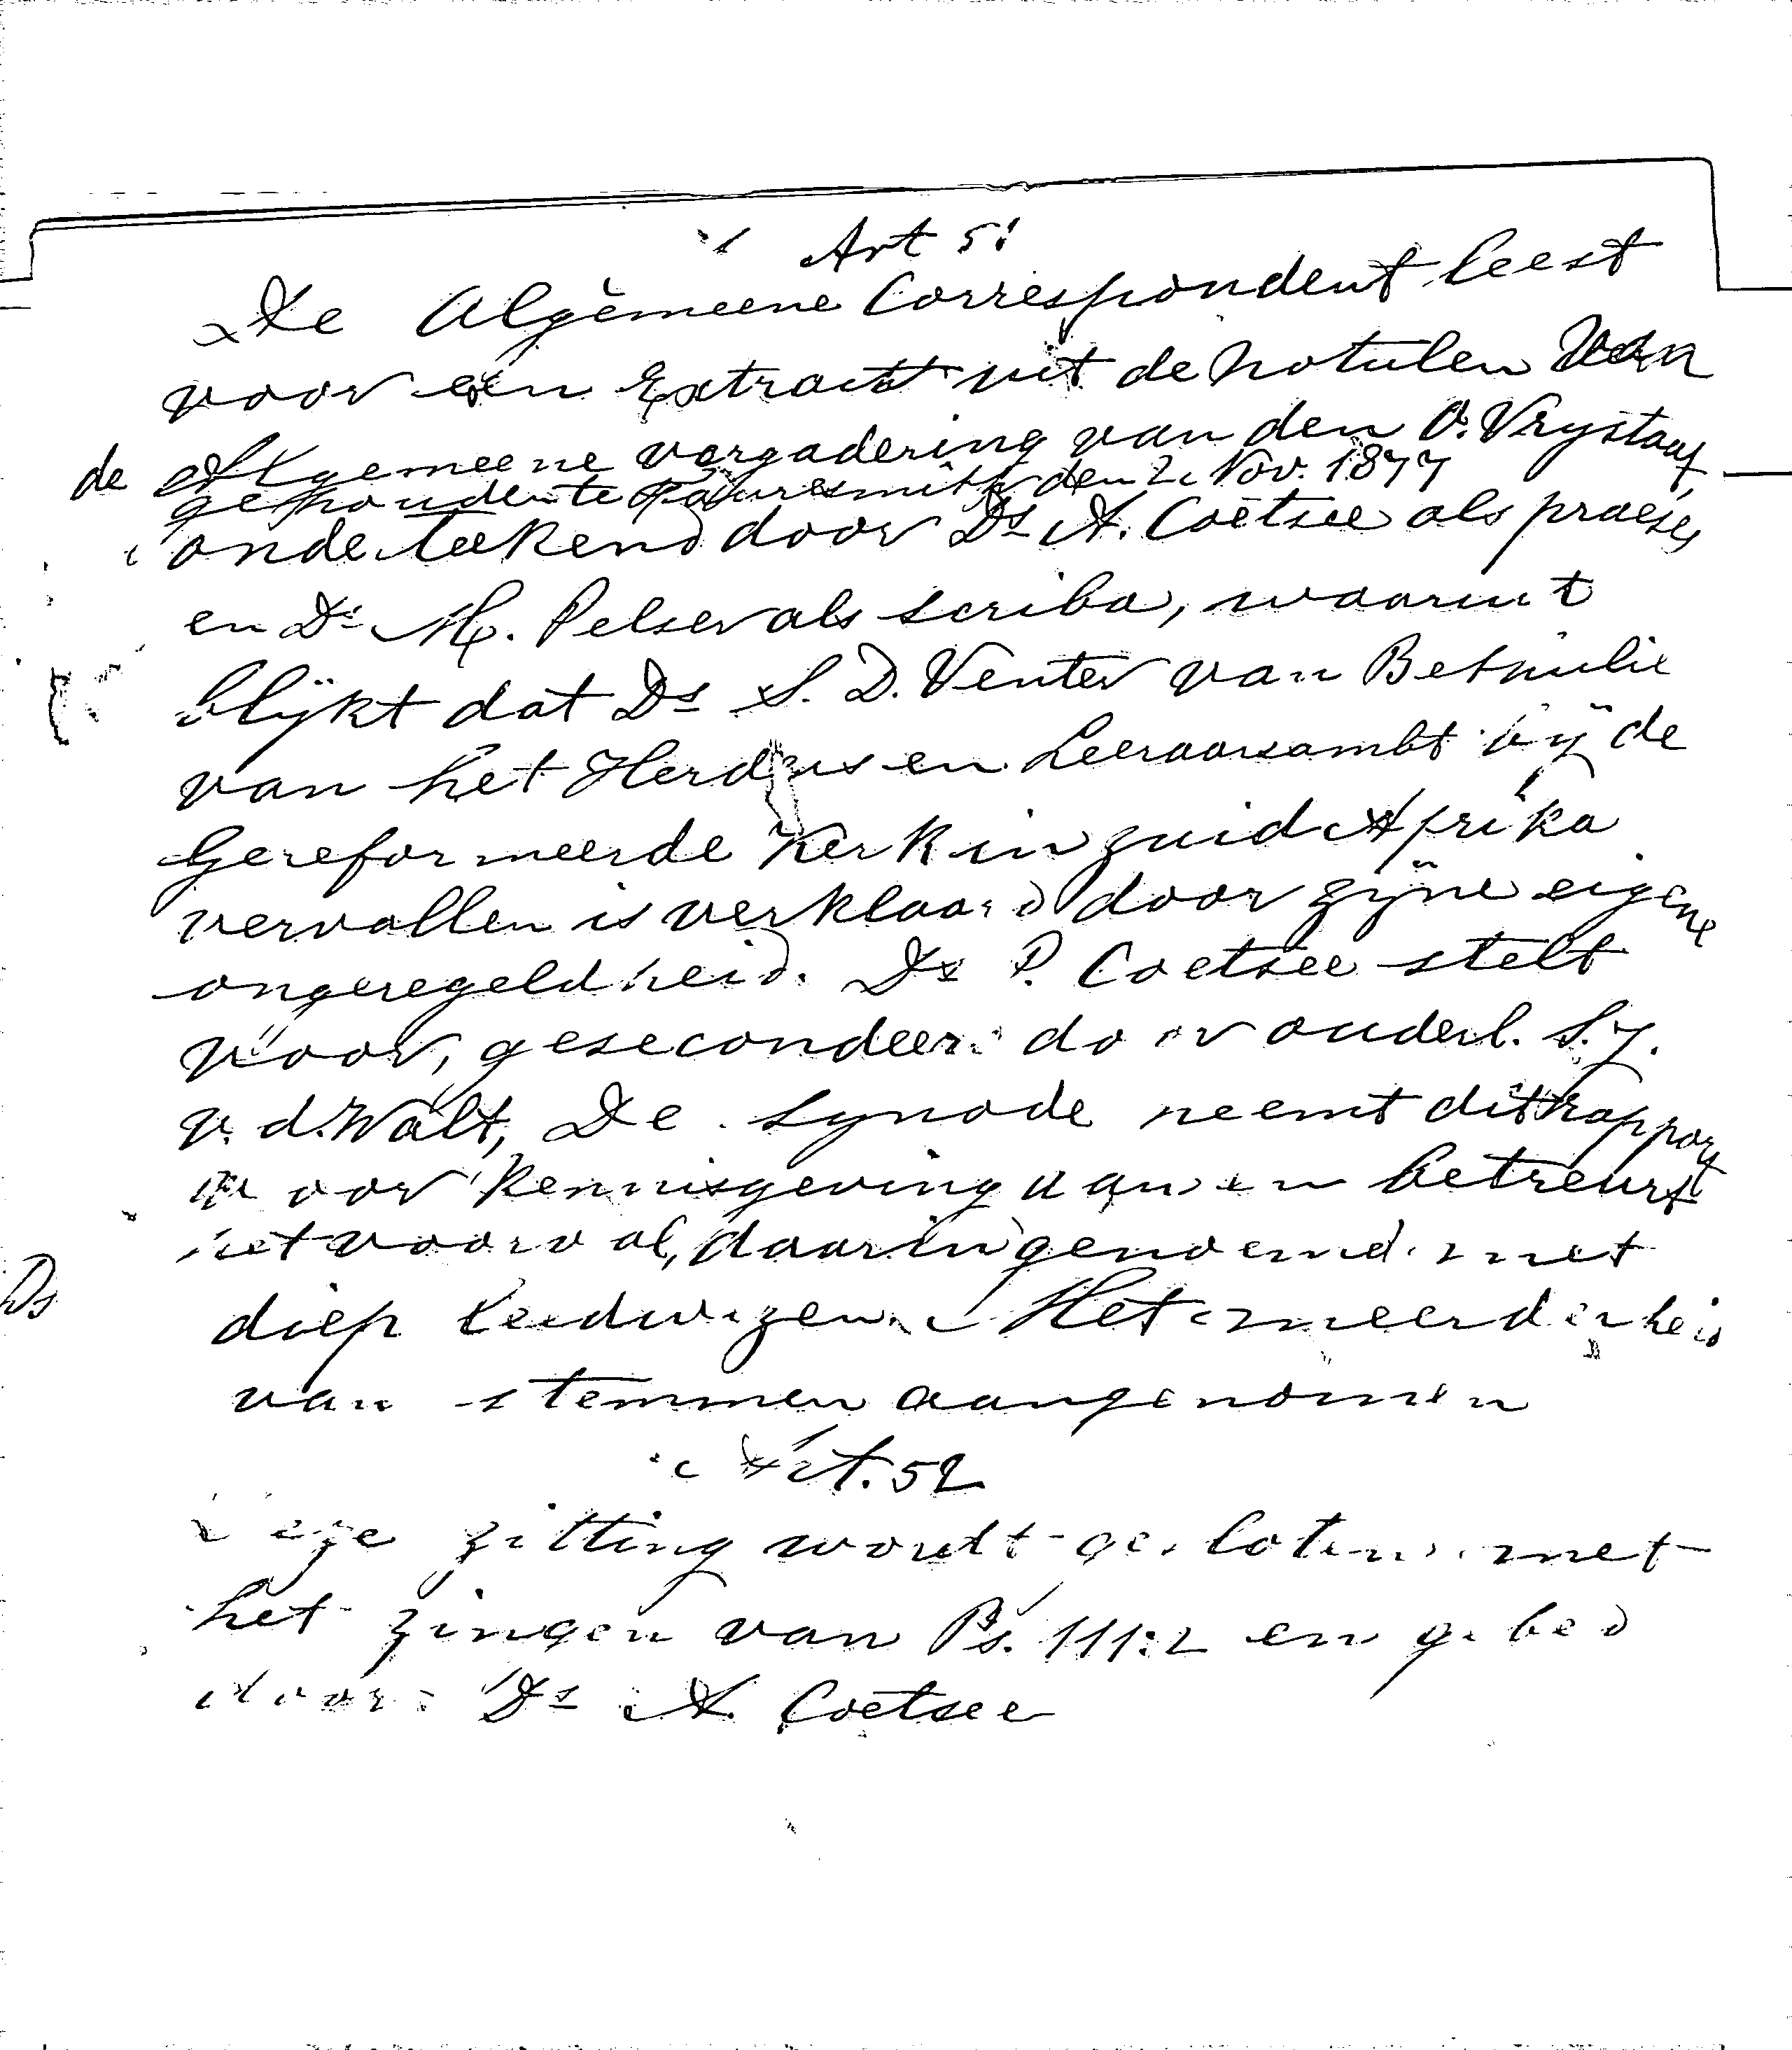 Art 51
De Algemeene Correspondent leest
voor een Extract uit de notulen van
de Algemeene vergadering van den O. Vrystaat
gehouden te Fauresmith den 2 Nov. 1877
onderteekend door Ds A. Coetsee als praeses
en Ds M. Pelser als scriba, waaruit
blijkt dat Ds S. D. Venter van Bethulie
van het Herders en Leeraarsambt bij de
Gereformeerde Kerk in Zuid Afrika
vervallen is verklaard door zijne eigene
ongeregeldheid. Ds P. Coetsee stelt
voor, gesecondeerd door ouderl. S. J.
v. d. Walt, De synode neemt dit rapport
voor kennisgeving aan en betreurt
het voorval, daarin genoemd met
diep leedwezen. Met meerderheid
van stemmen aangenomen
Art. 52
Deze zitting wordt gesloten met
het zingen van Ps. 111:2 en gebed
door Ds A. Coetsee
Ds